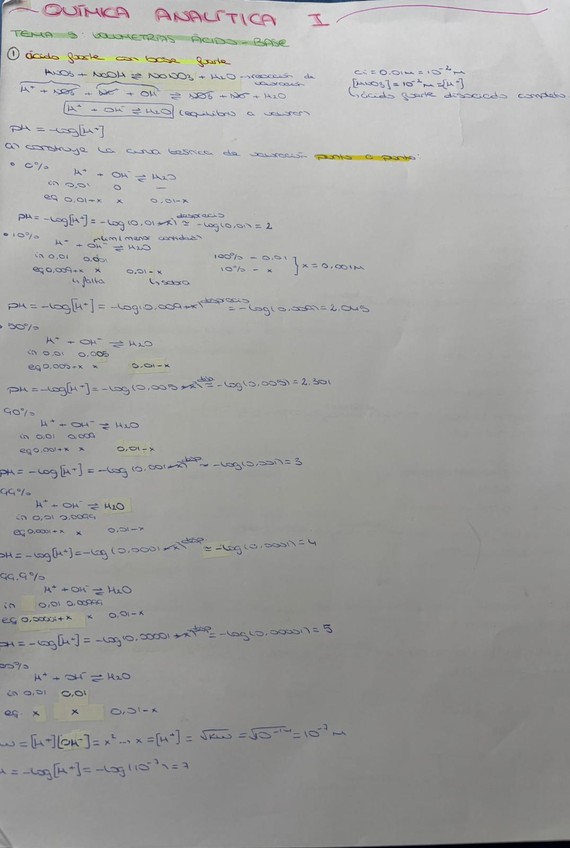 QUÍMICA ANALÍTICA I
TEMA 3: VOLUMETRÍAS ÁCIDO-BASE
① ácido fuerte con base fuerte
HNO3 + NaOH ⇌ NaNO3 + H2O → reacción de valoración
ci = 0.01M = 10⁻² M
H⁺ + NO3⁻ + Na⁺ + OH⁻ ⇌ NO3⁻ + Na⁺ + H2O
[HNO3] = 10⁻² M = [H⁺]
↳ácido fuerte disociado completo
H⁺ + OH⁻ ⇌ H2O (equilibrio a valorar)
pH = -log[H⁺]
a) construye la curva teórica de valoración punto a punto:
• 0%
H⁺ + OH⁻ ⇌ H2O
in 0,01 0 —
eq 0,01-x x 0,01-x
pH = -log[H⁺] = -log(0,01+x) ≃ -log(0,01) = 2
desprecio
• 10%
H⁺ + OH⁻ ⇌ H2O
in 0,01 0,001
100% - 0.01
eq 0,009+x x 0,01-x
10% - x } x = 0.001M
pH = -log[H⁺] = -log(0,009+x) desprecio = -log(0,009) = 2.045
• 50%
H⁺ + OH⁻ ⇌ H2O
in 0.01 0.005
eq 0.005+x x 0.01-x
pH = -log[H⁺] = -log(0.005+x) desp = -log(0.005) = 2.301
90%
H⁺ + OH⁻ ⇌ H2O
in 0.01 0.009
eq 0.001+x x 0.01-x
pH = -log[H⁺] = -log(0.001+x) desp = -log(0.001) = 3
99%
H⁺ + OH⁻ ⇌ H2O
in 0,01 0.0099
eq 0.0001+x x 0,01-x
pH = -log[H⁺] = -log(0.0001+x) desp = -log(0.0001) = 4
99.9%
H⁺ + OH⁻ ⇌ H2O
in 0,01 0.00999
eq 0,00001+x x 0,01-x
pH = -log[H⁺] = -log(0.00001+x) desp = -log(0.00001) = 5
00%
H⁺ + OH⁻ ⇌ H2O
in 0.01 0,01
eq. x x 0,01-x
w = [H⁺][OH⁻] = x² → x = [H⁺] = √Kw = √10⁻¹⁴ = 10⁻⁷ M
= -log[H⁺] = -log(10⁻⁷) = 7